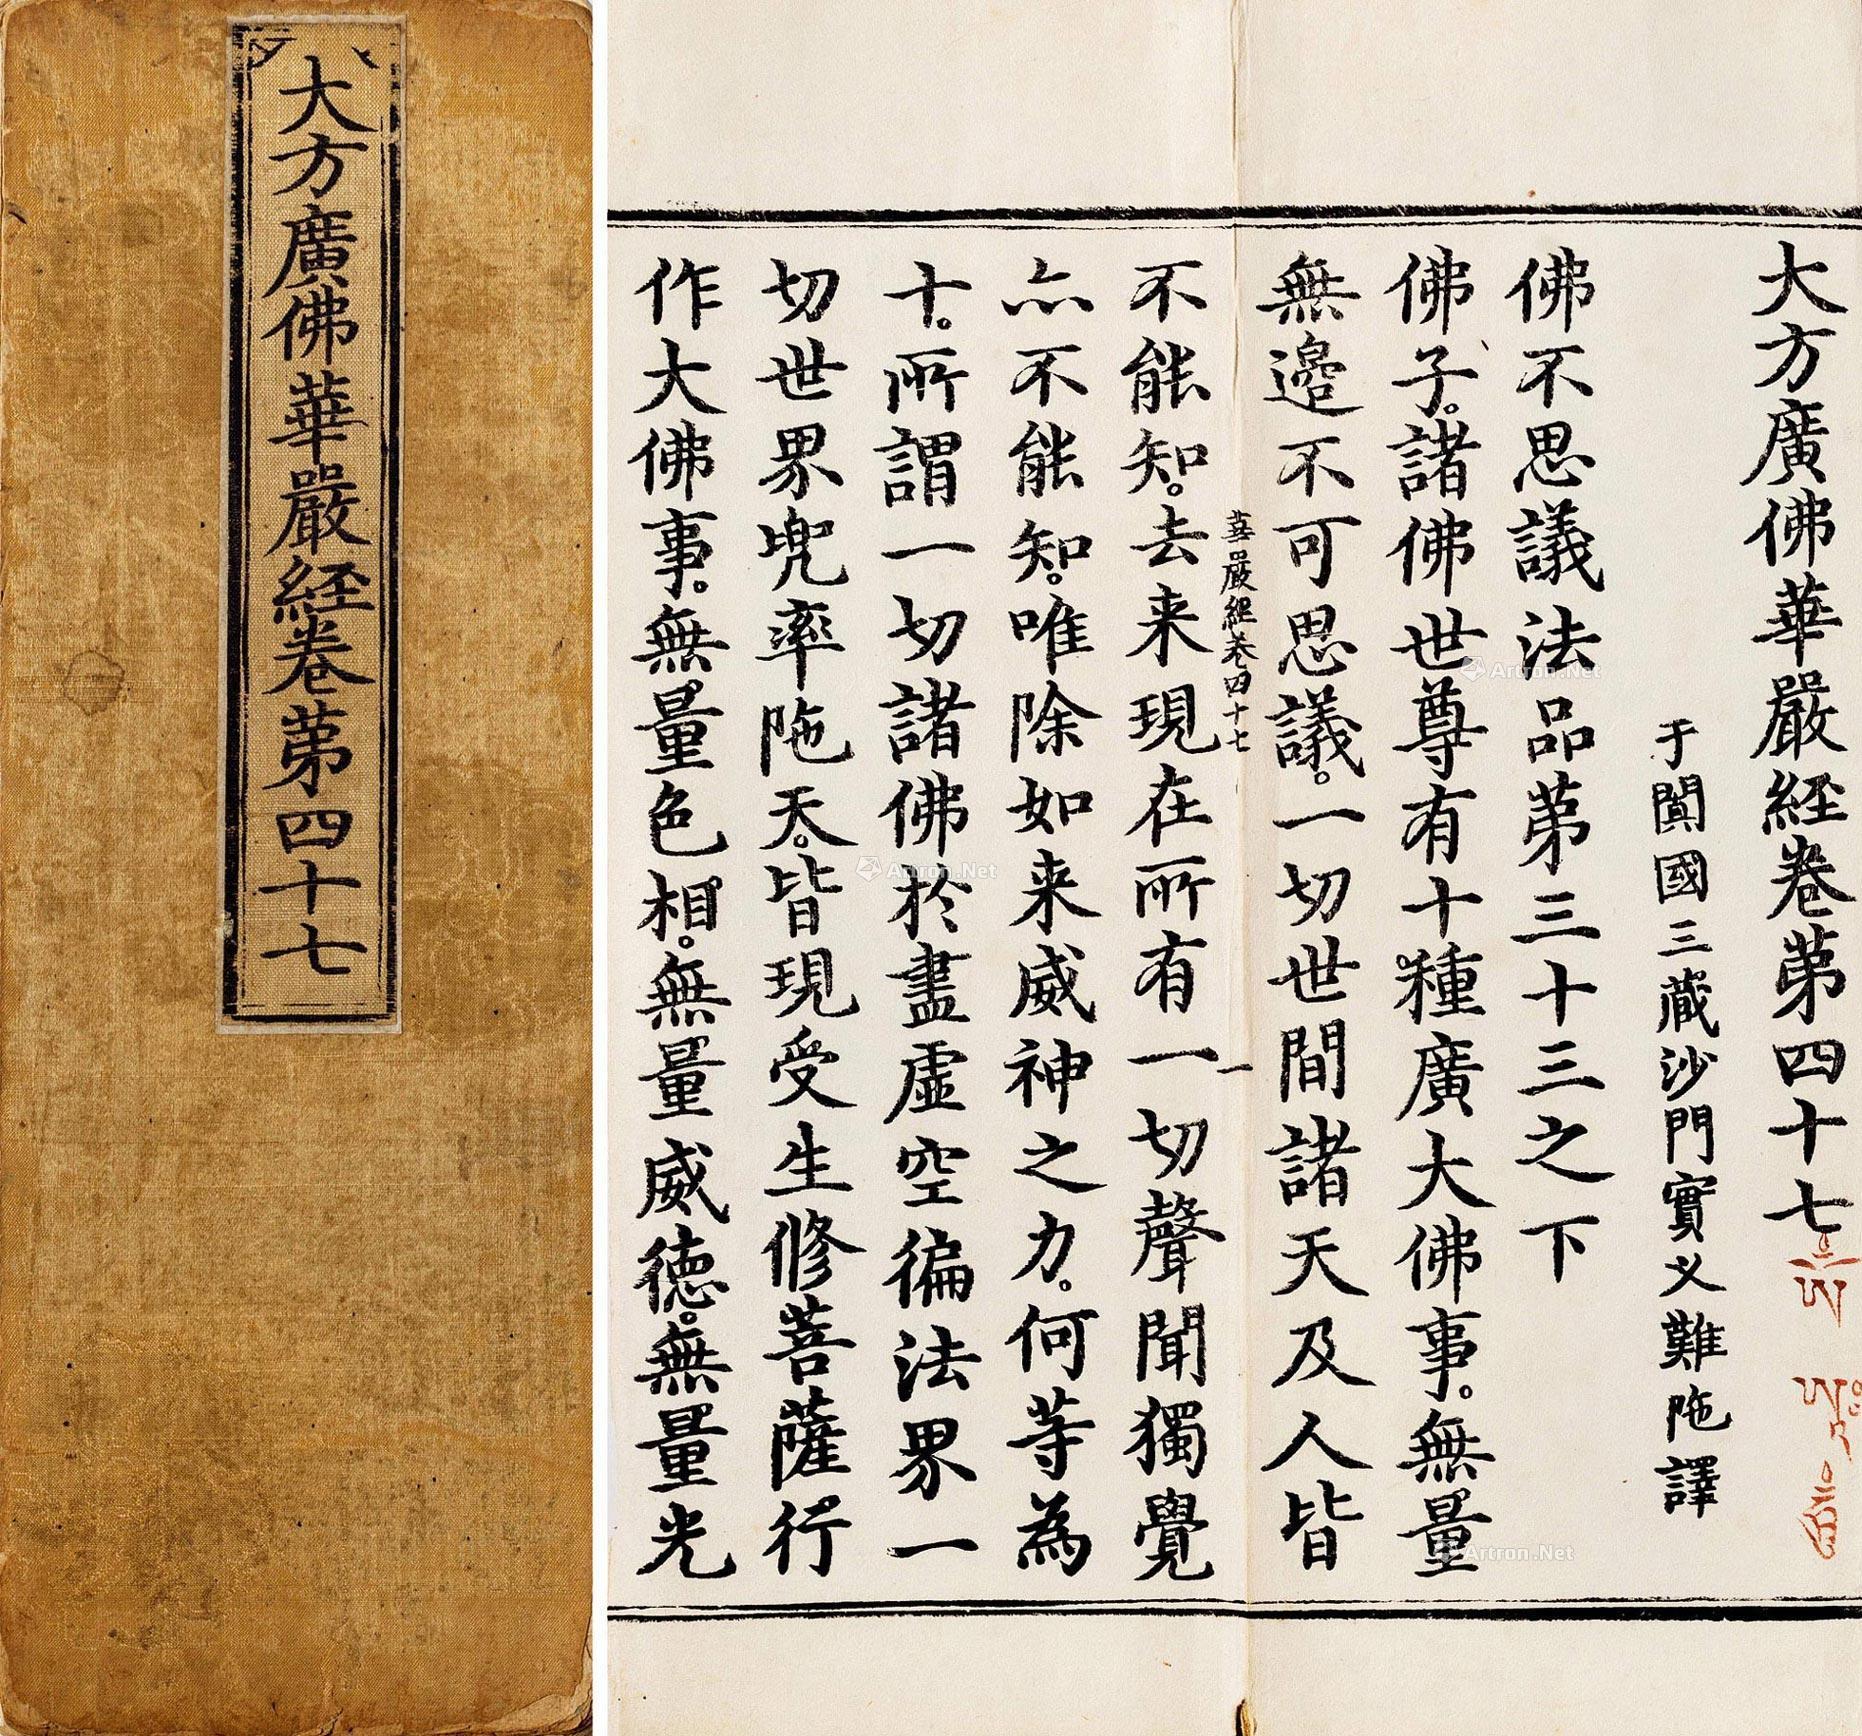 大方廣佛華嚴経卷苐四十七
大方廣佛華嚴経卷苐四十七
于闐國三蔵沙門實义難陁譯
佛不思議法品苐三十三之下
佛子。諸佛世尊有十種廣大佛事。無量
無邉不可思議。一切世間諸天及人皆
華嚴經卷四十七
一
不能知。去来現在所有一切聲聞獨覺
亦不能知。唯除如来威神之力。何等為
十。所謂一切諸佛於盡虚空徧法界一
切世界兜率陁天。皆現受生修菩薩行
作大佛事。無量色相。無量威德。無量光
Artron.Net
Artron.Net
Artron.Net